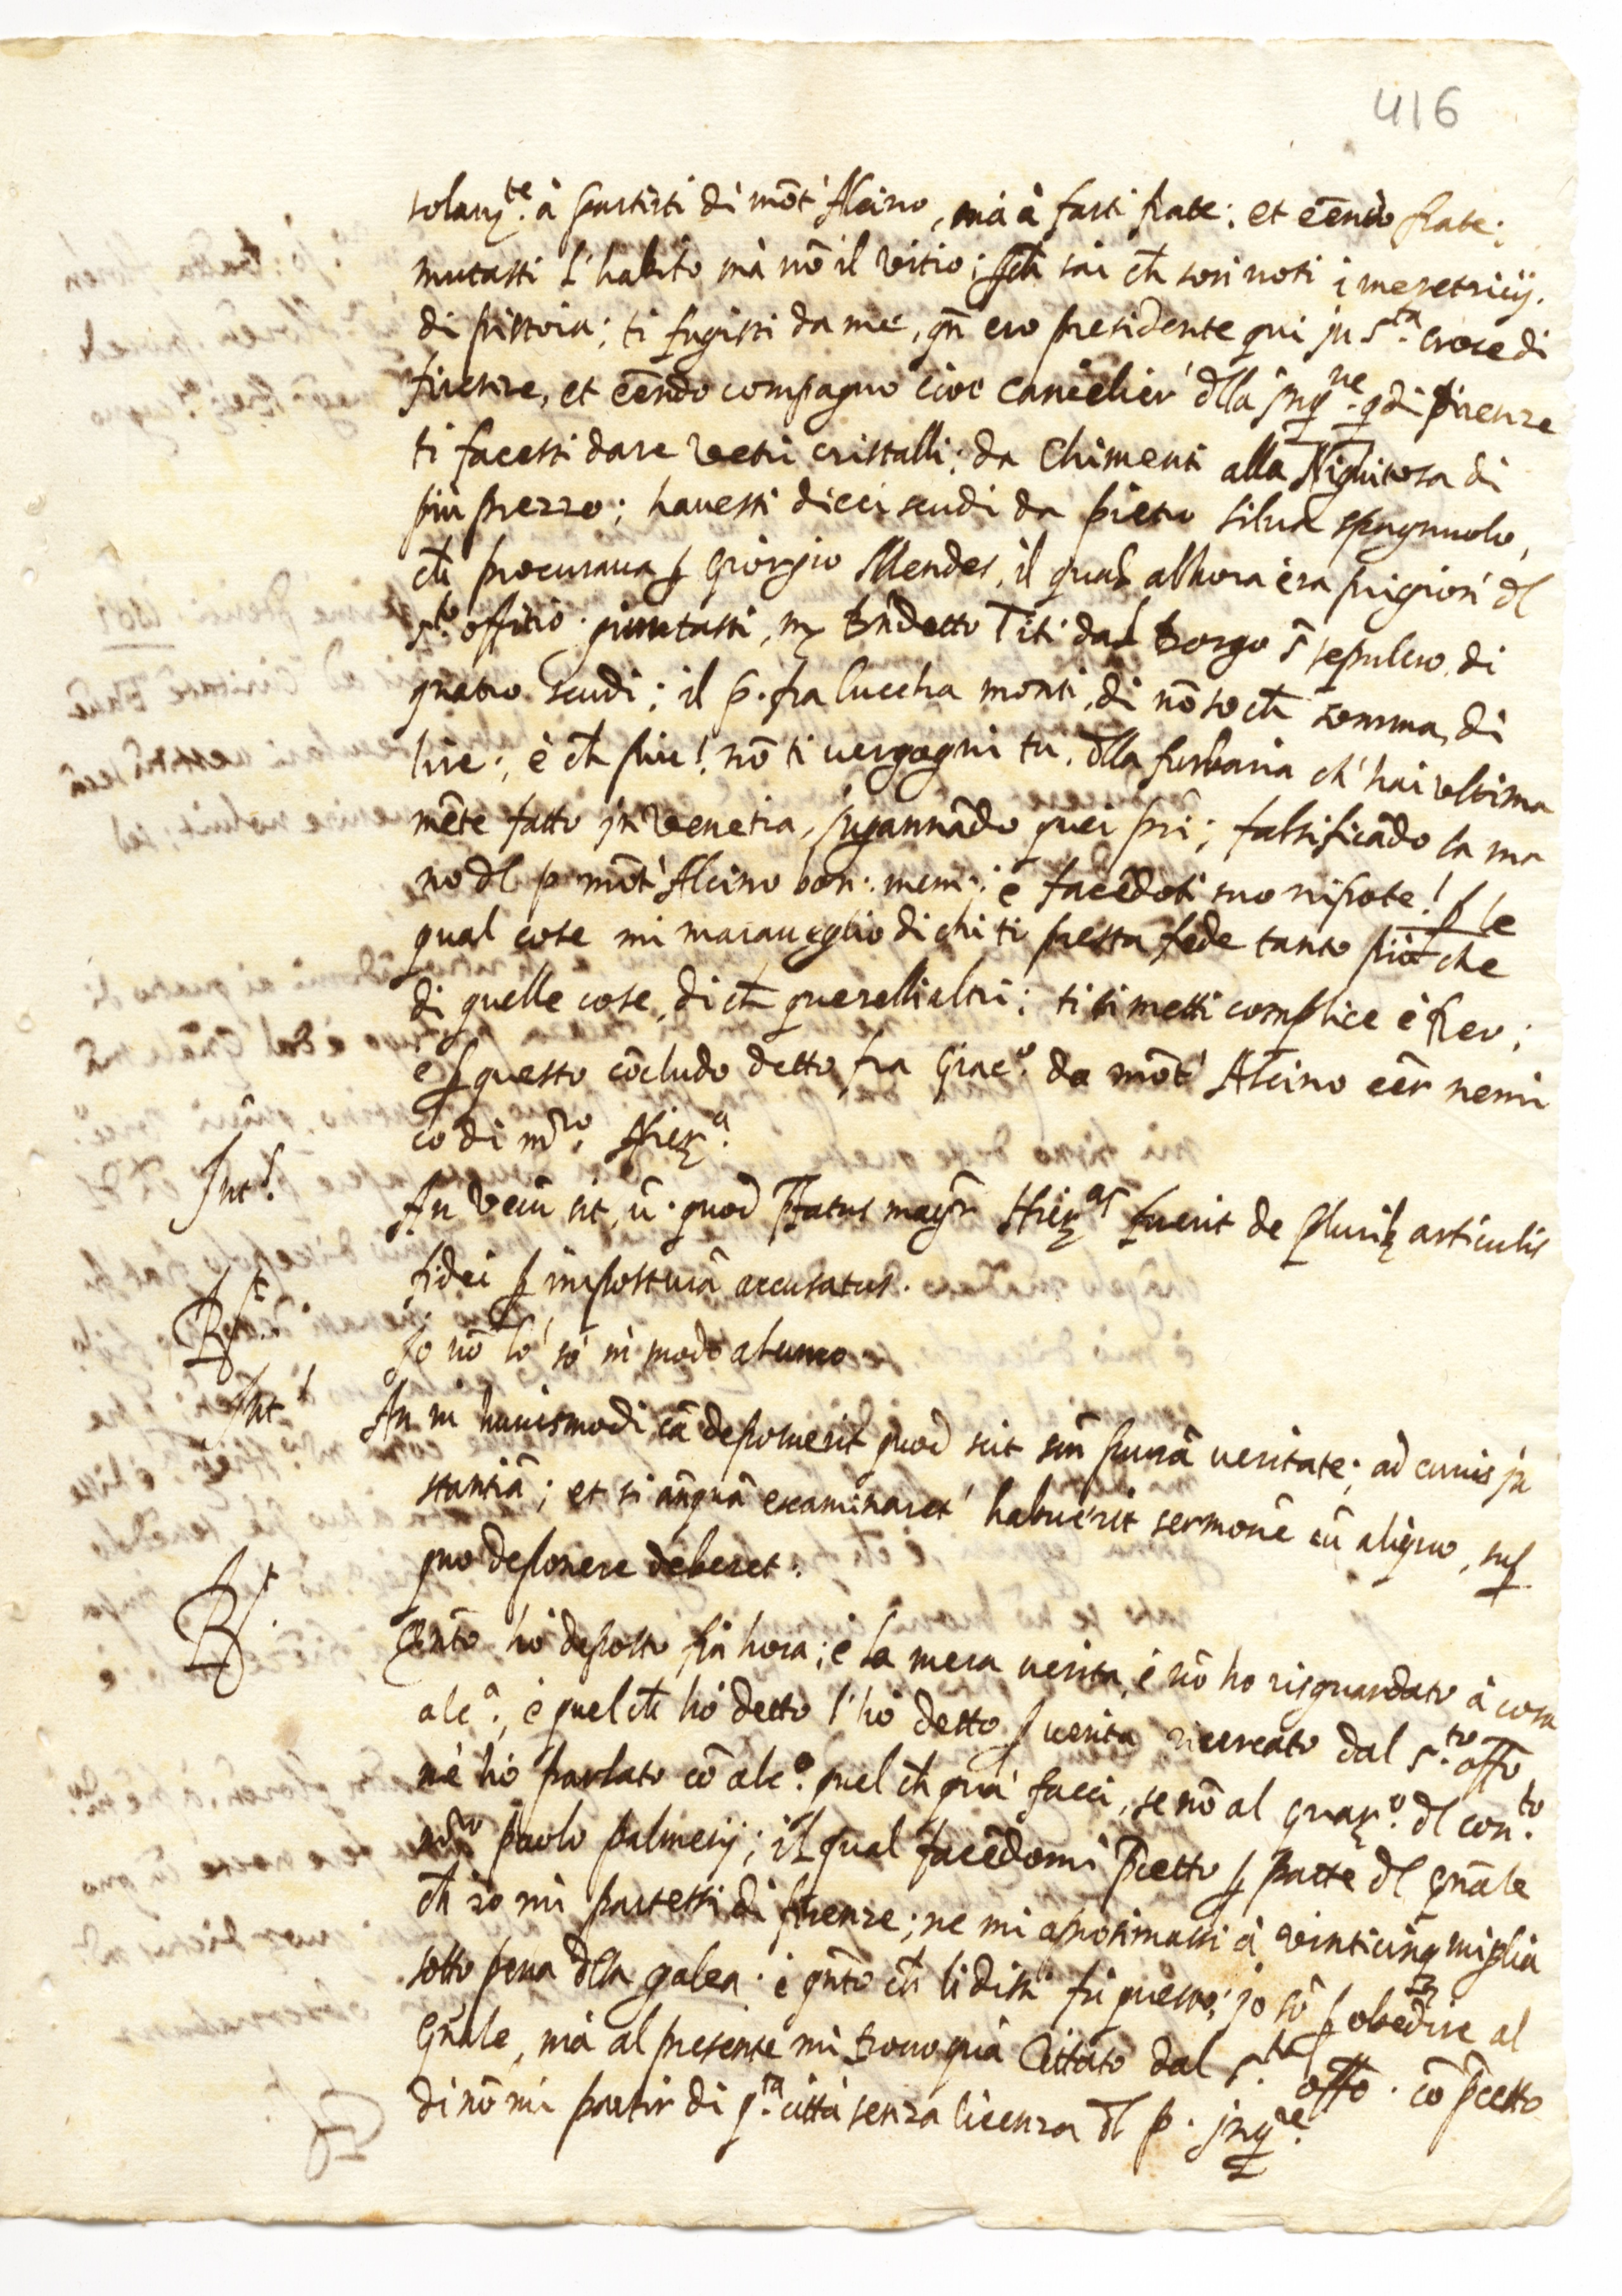 416
solam.te à partirti di mõt' Alcino, mà à farti frate: et eẽndo frate;
mutasti l'habito mà nõ il vitio; ch sai ch son noti i meretricij.
di pistoia; ti fugisti da me, qñ ero presidente qui in S.ta croce di
firenze, et eẽndo compagno cioè cancelier' dlla inq.ne di firenze
ti facesti dare vetri cristalli; da Chimenti alla Niquitosa di
più prezzo; havesti dieci scudi da pietro silva spagnuolo,
ch procurava p Giorgio Mendes, il qual alhora era prigion' dl
s.to offitio. giuntasti, m. Bñdetto Titi dal Borgo s. sepulcro, di
quatro scudi; il p. fra luccha monti, di nõ so ch somma, di
lire; è ch più! nõ ti vergogni tu, dlla furbaria ch' hai ultima
mẽte fatto in Venetia, ingannãdo quei pri; falsificãdo la ma
no dl p. mõt' Alcino bon: mem:; è facẽdoti suo nipote! p le
qual cose mi maraveglio di chi ti presta fede tanto più che
di quelle cose, di ch querelli altri; ti ti metti complice è Reo;
è p questo cõcludo detto fra Giac.o da mõt' Alcino eẽr nemi
co di m.ro Hier.a
Int.s An verũ sit, ũ. quod p̃fatus mag.r Hier.as fuerit de plurib. articulis
fidei p imposturã accusatus.
R.t Io nõ lo sò in modo alcuno.
Int.s An in huiusmodi cã deposuerit quod scit sũ purã veritate; ad cuius in
stantiã; et si anquã examinaret' habuerit sermonẽ cũ aliquo, sup
quo deponere deberet.
R.t Qñto hò deposto fin hora; è la mera verita, è nõ ho risguardato à cosa
alc.a, è quel ch hò detto l'hò detto p verita ricercato dal S.to offo
nè hò parlato cõ alc.o quel ch quà facci, se nõ al guar.o dl con.to
m.ro paolo palmerij; il qual facẽdomi p̃cetto p parte dl gñale
ch io mi partessi di firenze; ne mi aprosimassi à vinticinq miglia
sotto pena dlla galea. è qñto ch li dissi fu questo; io sõ p obedire al
Gnale, mà al presente mi trovo quà Cittato dal S.to offo. cõ p̃cetto
di nõ mi partir di q.ta città senza licenza dl p. inq.re